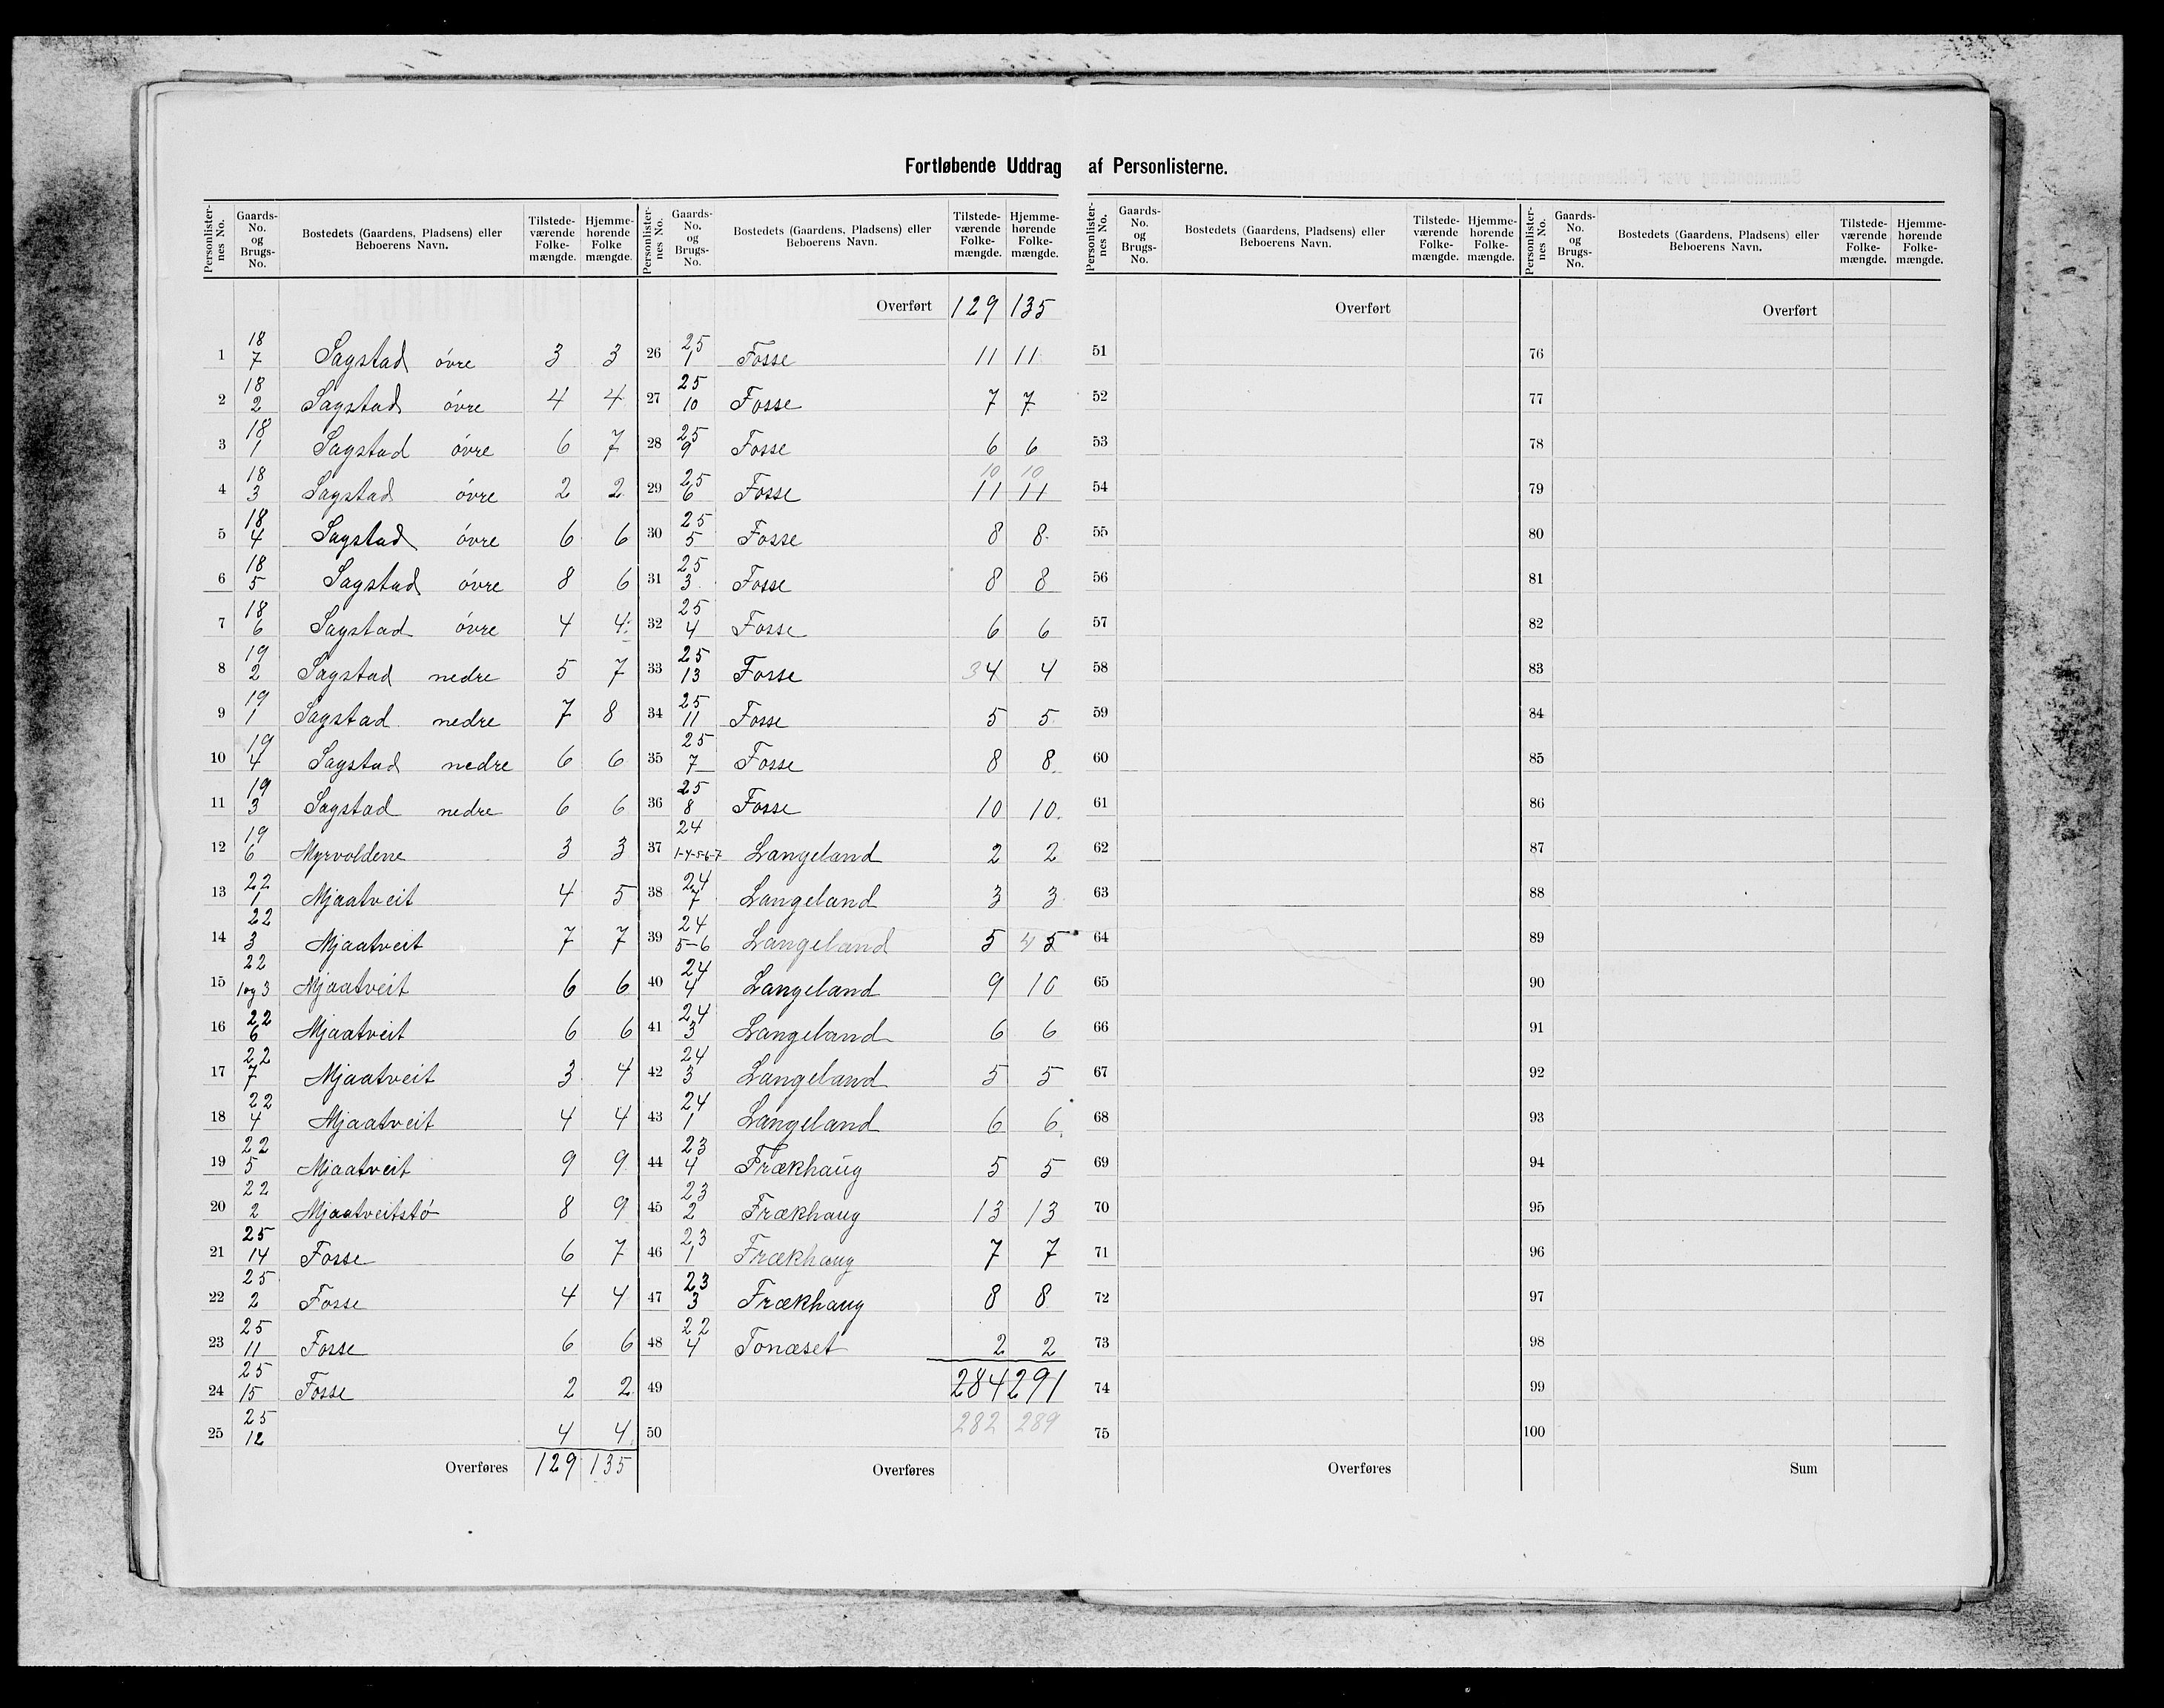 Fortløbende Uddrag af Personlisterne.
Personlister-nes No. | Gaards-No. og Brugs-No. | Bostedets (Gaardens, Pladsens) eller Beboerens Navn. | Tilstede-værende Folke-mængde. | Hjemme-hørende Folke mængde.
1 18/7 Sagstad övre 3 3
2 18/2 Sagstad övre 4 4
3 18/1 Sagstad övre 6 7
4 18/3 Sagstad övre 2 2
5 18/4 Sagstad övre 6 6
6 18/5 Sagstad övre 8 6
7 18/6 Sagstad övre 4 4
8 19/2 Sagstad nedre 5 7
9 19/1 Sagstad nedre 7 8
10 19/4 Sagstad nedre 6 6
11 19/3 Sagstad nedre 6 6
12 19/6 Myrvoldene 3 3
13 22/1 Mjaatveit 4 5
14 22/3 Mjaatveit 7 7
15 22/1og3 Mjaatveit 6 6
16 22/6 Mjaatveit 6 6
17 22/7 Mjaatveit 3 4
18 22/4 Mjaatveit 4 4
19 22/5 Mjaatveit 9 9
20 22/2 Mjaatveitstö 8 9
21 25/14 Fosse 6 7
22 25/2 Fosse 4 4
23 25/11 Fosse 6 6
24 25/15 Fosse 2 2
25 25/12 4 4
Overføres 129 135
Personlister-nes No. | Gaards-No. og Brugs-No. | Bostedets (Gaardens, Pladsens) eller Beboerens Navn. | Tilstede-værende Folke-mængde. | Hjemme-hørende Folke-mængde.
Overført 129 135
26 25/1 Fosse 11 11
27 25/10 Fosse 7 7
28 25/9 Fosse 6 6
10 10
29 25/6 Fosse 11 11
30 25/5 Fosse 8 8
31 25/3 Fosse 8 8
32 25/4 Fosse 6 6
33 25/13 Fosse 3 4 4
34 25/11 Fosse 5 5
35 25/7 Fosse 8 8
36 25/8 Fosse 10 10
37 24/1-4-5-6-7 Langeland 2 2
38 24/7 Langeland 3 3
39 24/5-6 Langeland 5 4 5
40 24/4 Langeland 9 10
41 24/3 Langeland 6 6
42 24/3 Langeland 5 5
43 24/1 Langeland 6 6
44 23/4 Frækhaug 5 5
45 23/2 Frækhaug 13 13
46 23/1 Frækhaug 7 7
47 23/3 Frækhaug 8 8
48 22/4 Tonæset 2 2
49 284 291
50 282 289
Overføres
Personlister-nes No. | Gaards-No. og Brugs-No. | Bostedets (Gaardens, Pladsens) eller Beboerens Navn. | Tilstede-værende Folke-mængde. | Hjemme-hørende Folke-mængde.
Overført
51
52
53
54
55
56
57
58
59
60
61
62
63
64
65
66
67
68
69
70
71
72
73
74
75
Overføres
Personlister-nes No. | Gaards-No. og Brugs-No. | Bostedets (Gaardens, Pladsens) eller Beboerens Navn. | Tilstede-værende Folke-mængde. | Hjemme-hørende Folke-mængde.
Overført
76
77
78
79
80
81
82
83
84
85
86
87
88
89
90
91
92
93
94
95
96
97
98
99
100
Sum